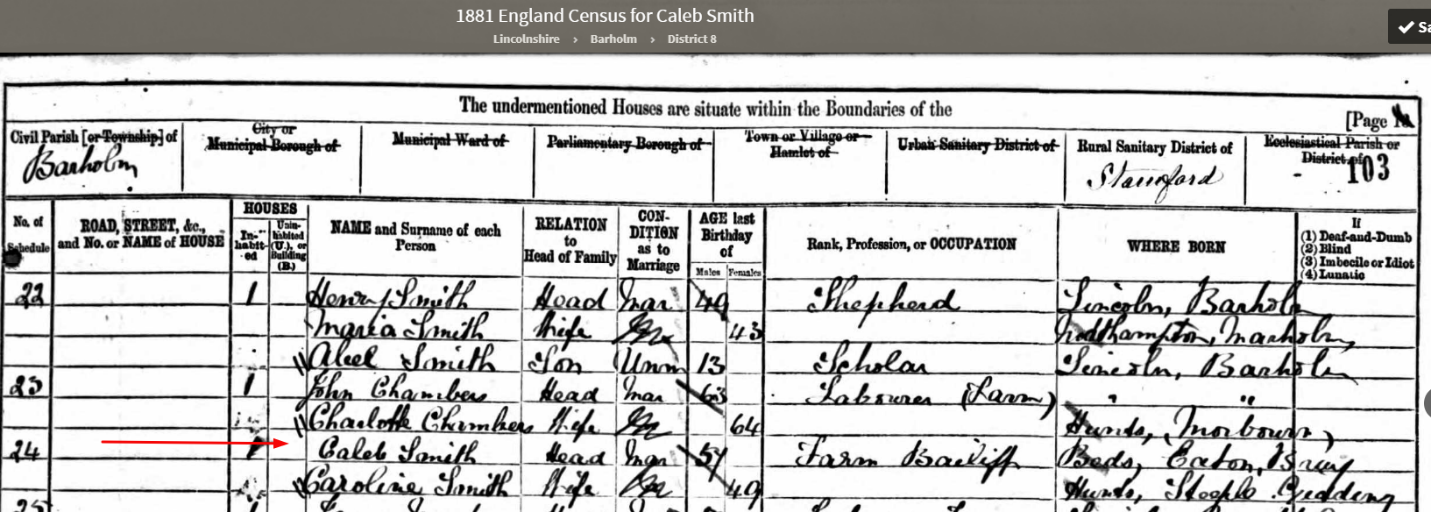 1881 England Census for Caleb Smith
Lincolnshire > Barholm > District 8
The undermentioned Houses are situate within the Boundaries of the
[Page
Civil Parish [or Township] of
Barholm
City or Municipal Borough of
Municipal Ward of
Parliamentary Borough of
Town or Village or Hamlet of
Urban Sanitary District of
Rural Sanitary District of
Stamford
Ecclesiastical Parish or District of
103
No. of Schedule
ROAD, STREET, &c., and No. or NAME of HOUSE
HOUSES
In-habit-ed
Unin-habited (U.), or Building (B.)
NAME and Surname of each Person
RELATION to Head of Family
CON-DITION as to Marriage
AGE last Birthday of
Males Females
Rank, Profession, or OCCUPATION
WHERE BORN
If
(1) Deaf-and-Dumb
(2) Blind
(3) Imbecile or Idiot
(4) Lunatic
22 1 Henry Smith Head Mar 49 Shepherd Lincoln, Barholm
Maria Smith Wife M 43 Northampton, Marholm
Abel Smith Son Unm 13 Scholar Lincoln, Barholm
23 1 John Chambers Head Mar 63 Labourer (Farm) " "
Charlotte Chambers Wife M 64 Hunts, Morbourn
24 1 Caleb Smith Head Mar 57 Farm Bailiff Beds, Eaton,
Caroline Smith Wife M 49 Hunts, Steeple Gidding
25